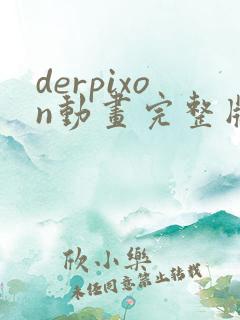 derpixo
n動畫完整版
欣小樂
未經同意禁止轉載